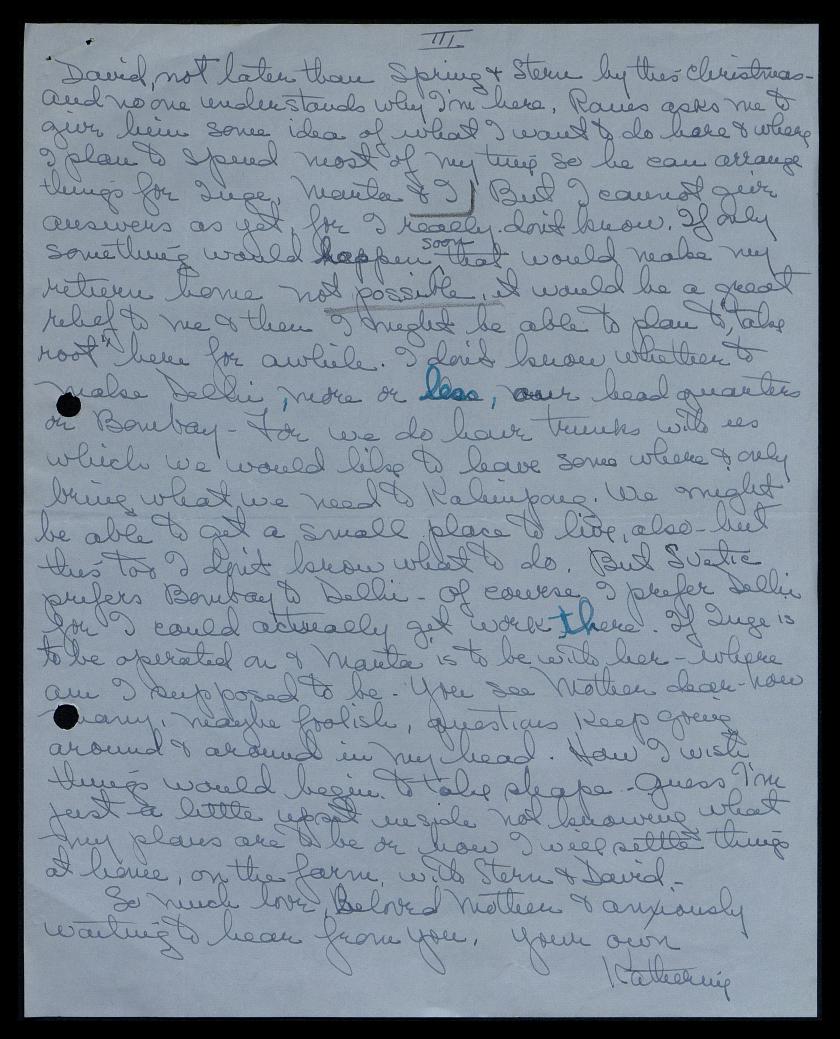 III
David, not later than Spring & Stern by this Christmas -
and no one understands why I'm here. Raues asks me to
give him some idea of what I want to do here & where
I plan to spend most of my time so he can arrange
things for Inge, Manta & I] But I cannot give
answers as yet, for I really don't know. If only
soon
something would happen that would make my
return home not possible, it would be a great
relief to me & then I might be able to plan to "take
root" here for awhile. I don't know whether to
make Delhi, more or less, our head quarters
or Bombay - For we do have trunks with us
which we would like to leave some where & only
bring what we need to Kalimpong. We might
be able to get a small place to live, also - but
this too I don't know what to do. But Svetic
prefers Bombay to Delhi - of course I prefer Delhi
for I could actually get work there. If Inge is
to be operated on & Manta is to be with her - where
am I supposed to be. You see Mother dear - how
many, maybe foolish, questions keep going
around & around in my head. How I wish
things would begin to take shape - Guess I'm
just a little upset inside not knowing what
my plans are to be or how I will settle things
at home, on the farm, with Stern & David.-
So much love, Beloved Mother & anxiously
waiting to hear from you. Your own
Katherine